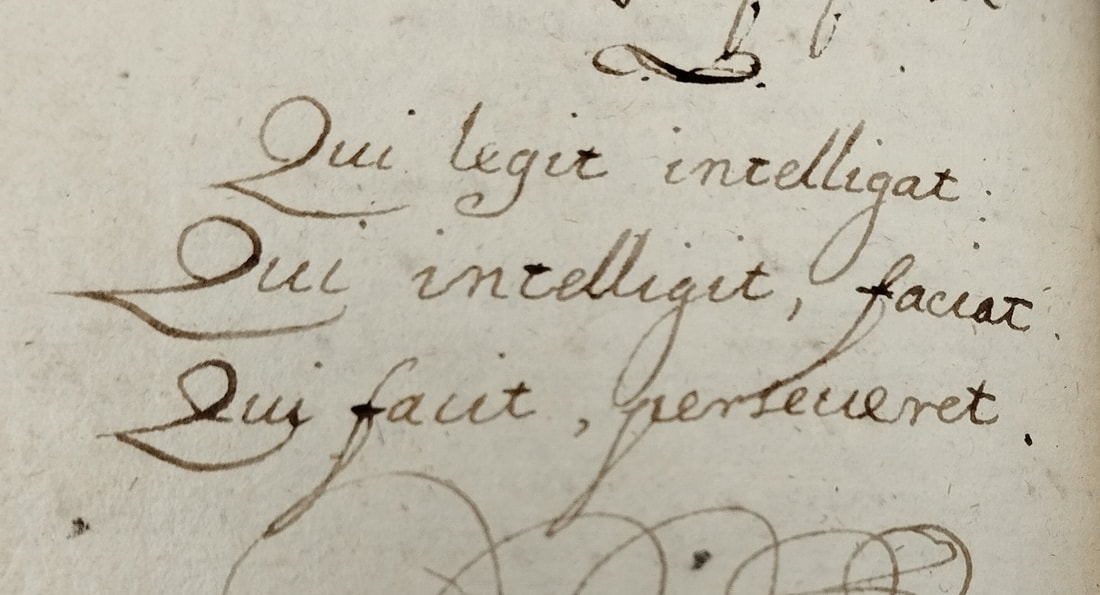 Qui legit intelligat.
Qui intelligit, faciat.
Qui facit, perseueret.